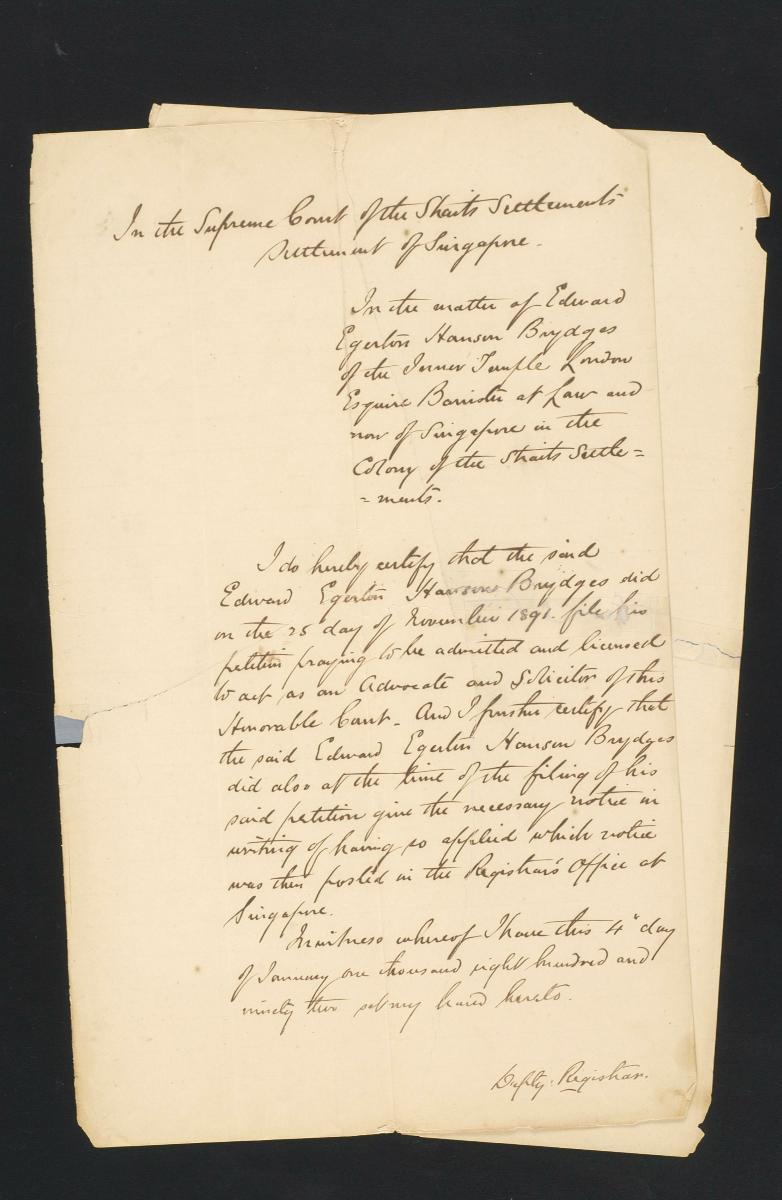 In the Supreme Court of the Straits Settlements
Settlement of Singapore.
In the matter of Edward
Egerton Hanson Brydges
of the Inner Temple London
Esquire Barrister at Law and
now of Singapore in the
Colony of the Straits Settle=
=ments.
I do hereby certify that the said
Edward Egerton Hanson Brydges did
on the 25 day of November 1891. file his
petition praying to be admitted and licensed
to act as an Advocate and Solicitor of this
Honorable Court - And I further certify that
the said Edward Egerton Hanson Brydges
did also at the time of the filing of his
said petition give the necessary notice in
writing of having so applied which notice
was then posted in the Registrar's Office at
Singapore.
In witness whereof I have this 4" day
of January one thousand eight hundred and
ninety two set my hand hereto.
Depty. Registrar.